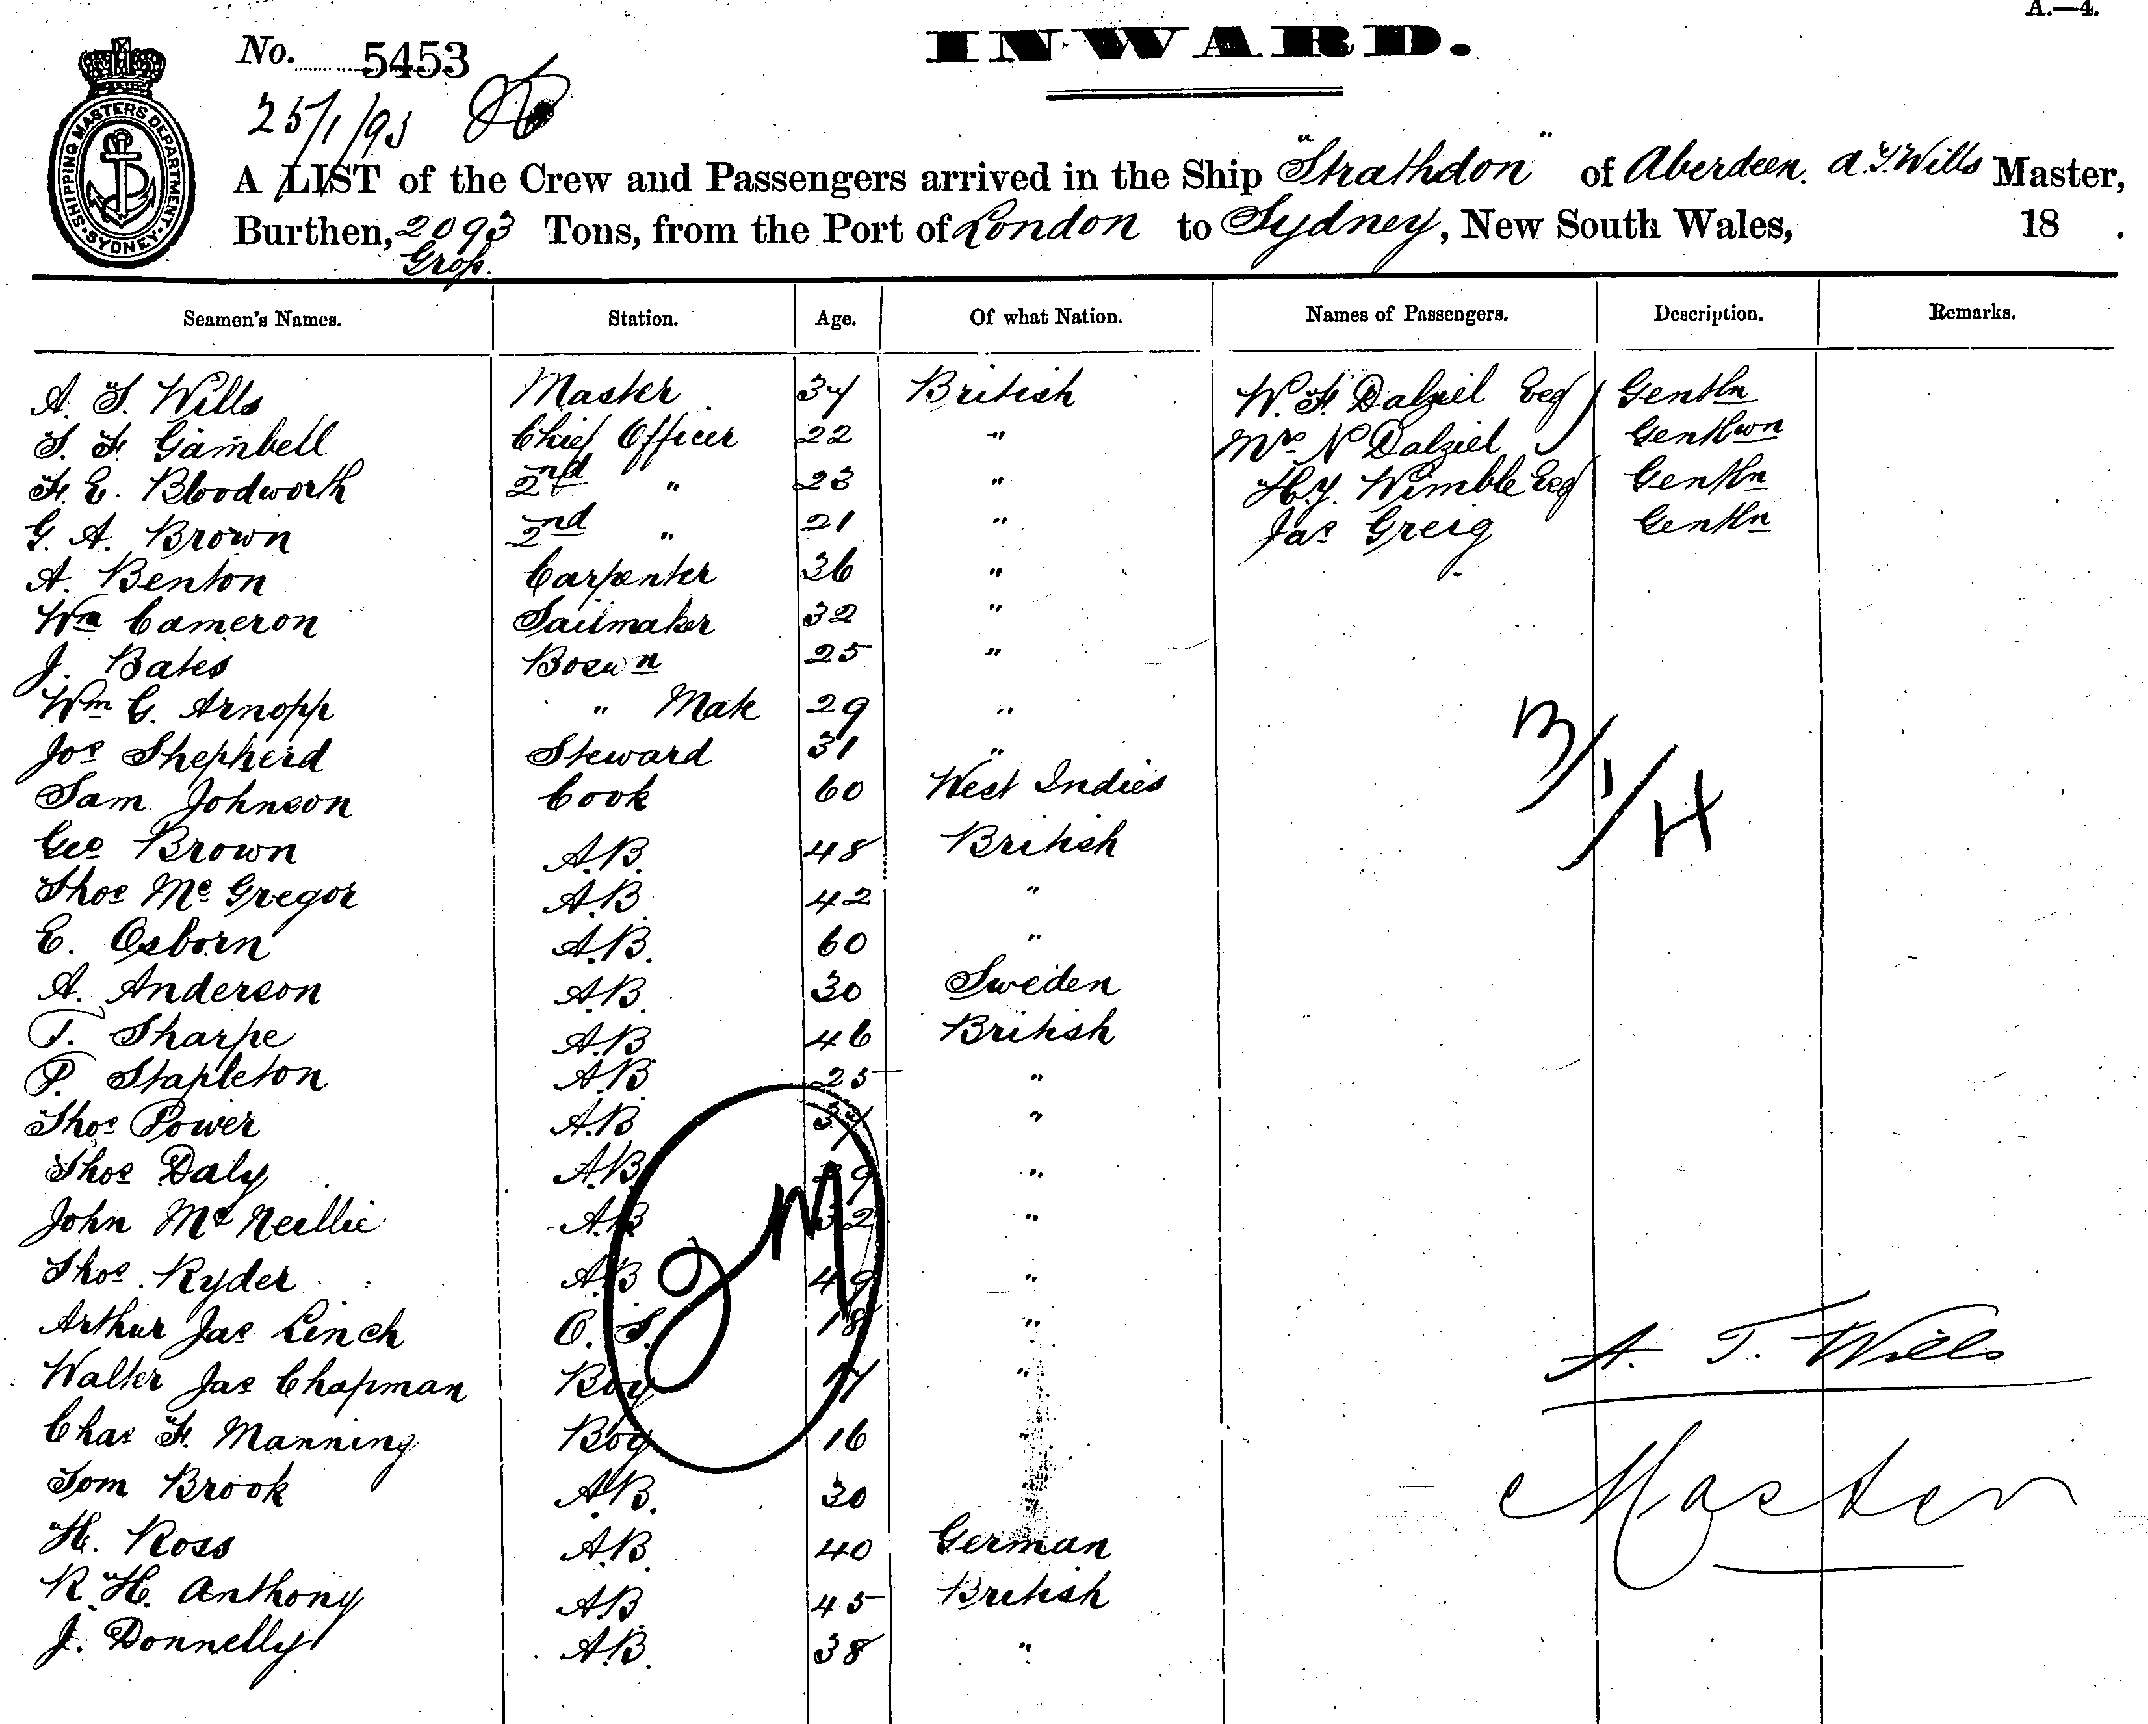 A.—4.
No. 5453
INWARD.
25/1/93
SHIPPING MASTERS DEPARTMENT
SYDNEY
A LIST of the Crew and Passengers arrived in the Ship "Strathdon" of Aberdeen. A.T. Wills Master,
Burthen, 2093 Tons, from the Port of London to Sydney, New South Wales, 18 .
Gross.
Seamen's Names. Station. Age. Of what Nation. Names of Passengers. Description. Remarks.
A. T. Wills Master 34 British W. F. Dalziel Esq Gentln
T. F. Gambell Chief Officer 22 " Mrs N Dalziel Gentlwn
F. E. Bloodworth 2nd " 23 " Hy. Wimble Esq Gentln
G. A. Brown 2nd " 21 " Jas Greig Gentln
A. Benton Carpenter 36 "
Wm Cameron Sailmaker 32 "
J. Bates Bosun 25 "
Wm G. Arnopp " Mate 29 "
Jos Shepherd Steward 31 "
Sam Johnson Cook 60 West Indies
Geo Brown A.B. 48 British
Thos McGregor A.B. 42 "
E. Osborn A.B. 60 "
A. Anderson A.B. 30 Sweden
T. Sharpe A.B. 46 British
P. Stapleton A.B. 25 "
Thos Power A.B. "
Thos Daly A.B. "
John McNeillie A.B. 32 "
Thos Ryder A.B. 49 "
Arthur Jas Linch O.S. 18 "
Walter Jas Chapman Boy 17 "
Chas F. Manning Boy 16 "
Tom Brook A.B. 30 "
H. Ross A.B. 40 German
R. H. Anthony A.B. 45 British
J. Donnelly A.B. 38 "
A. T. Wills
Master